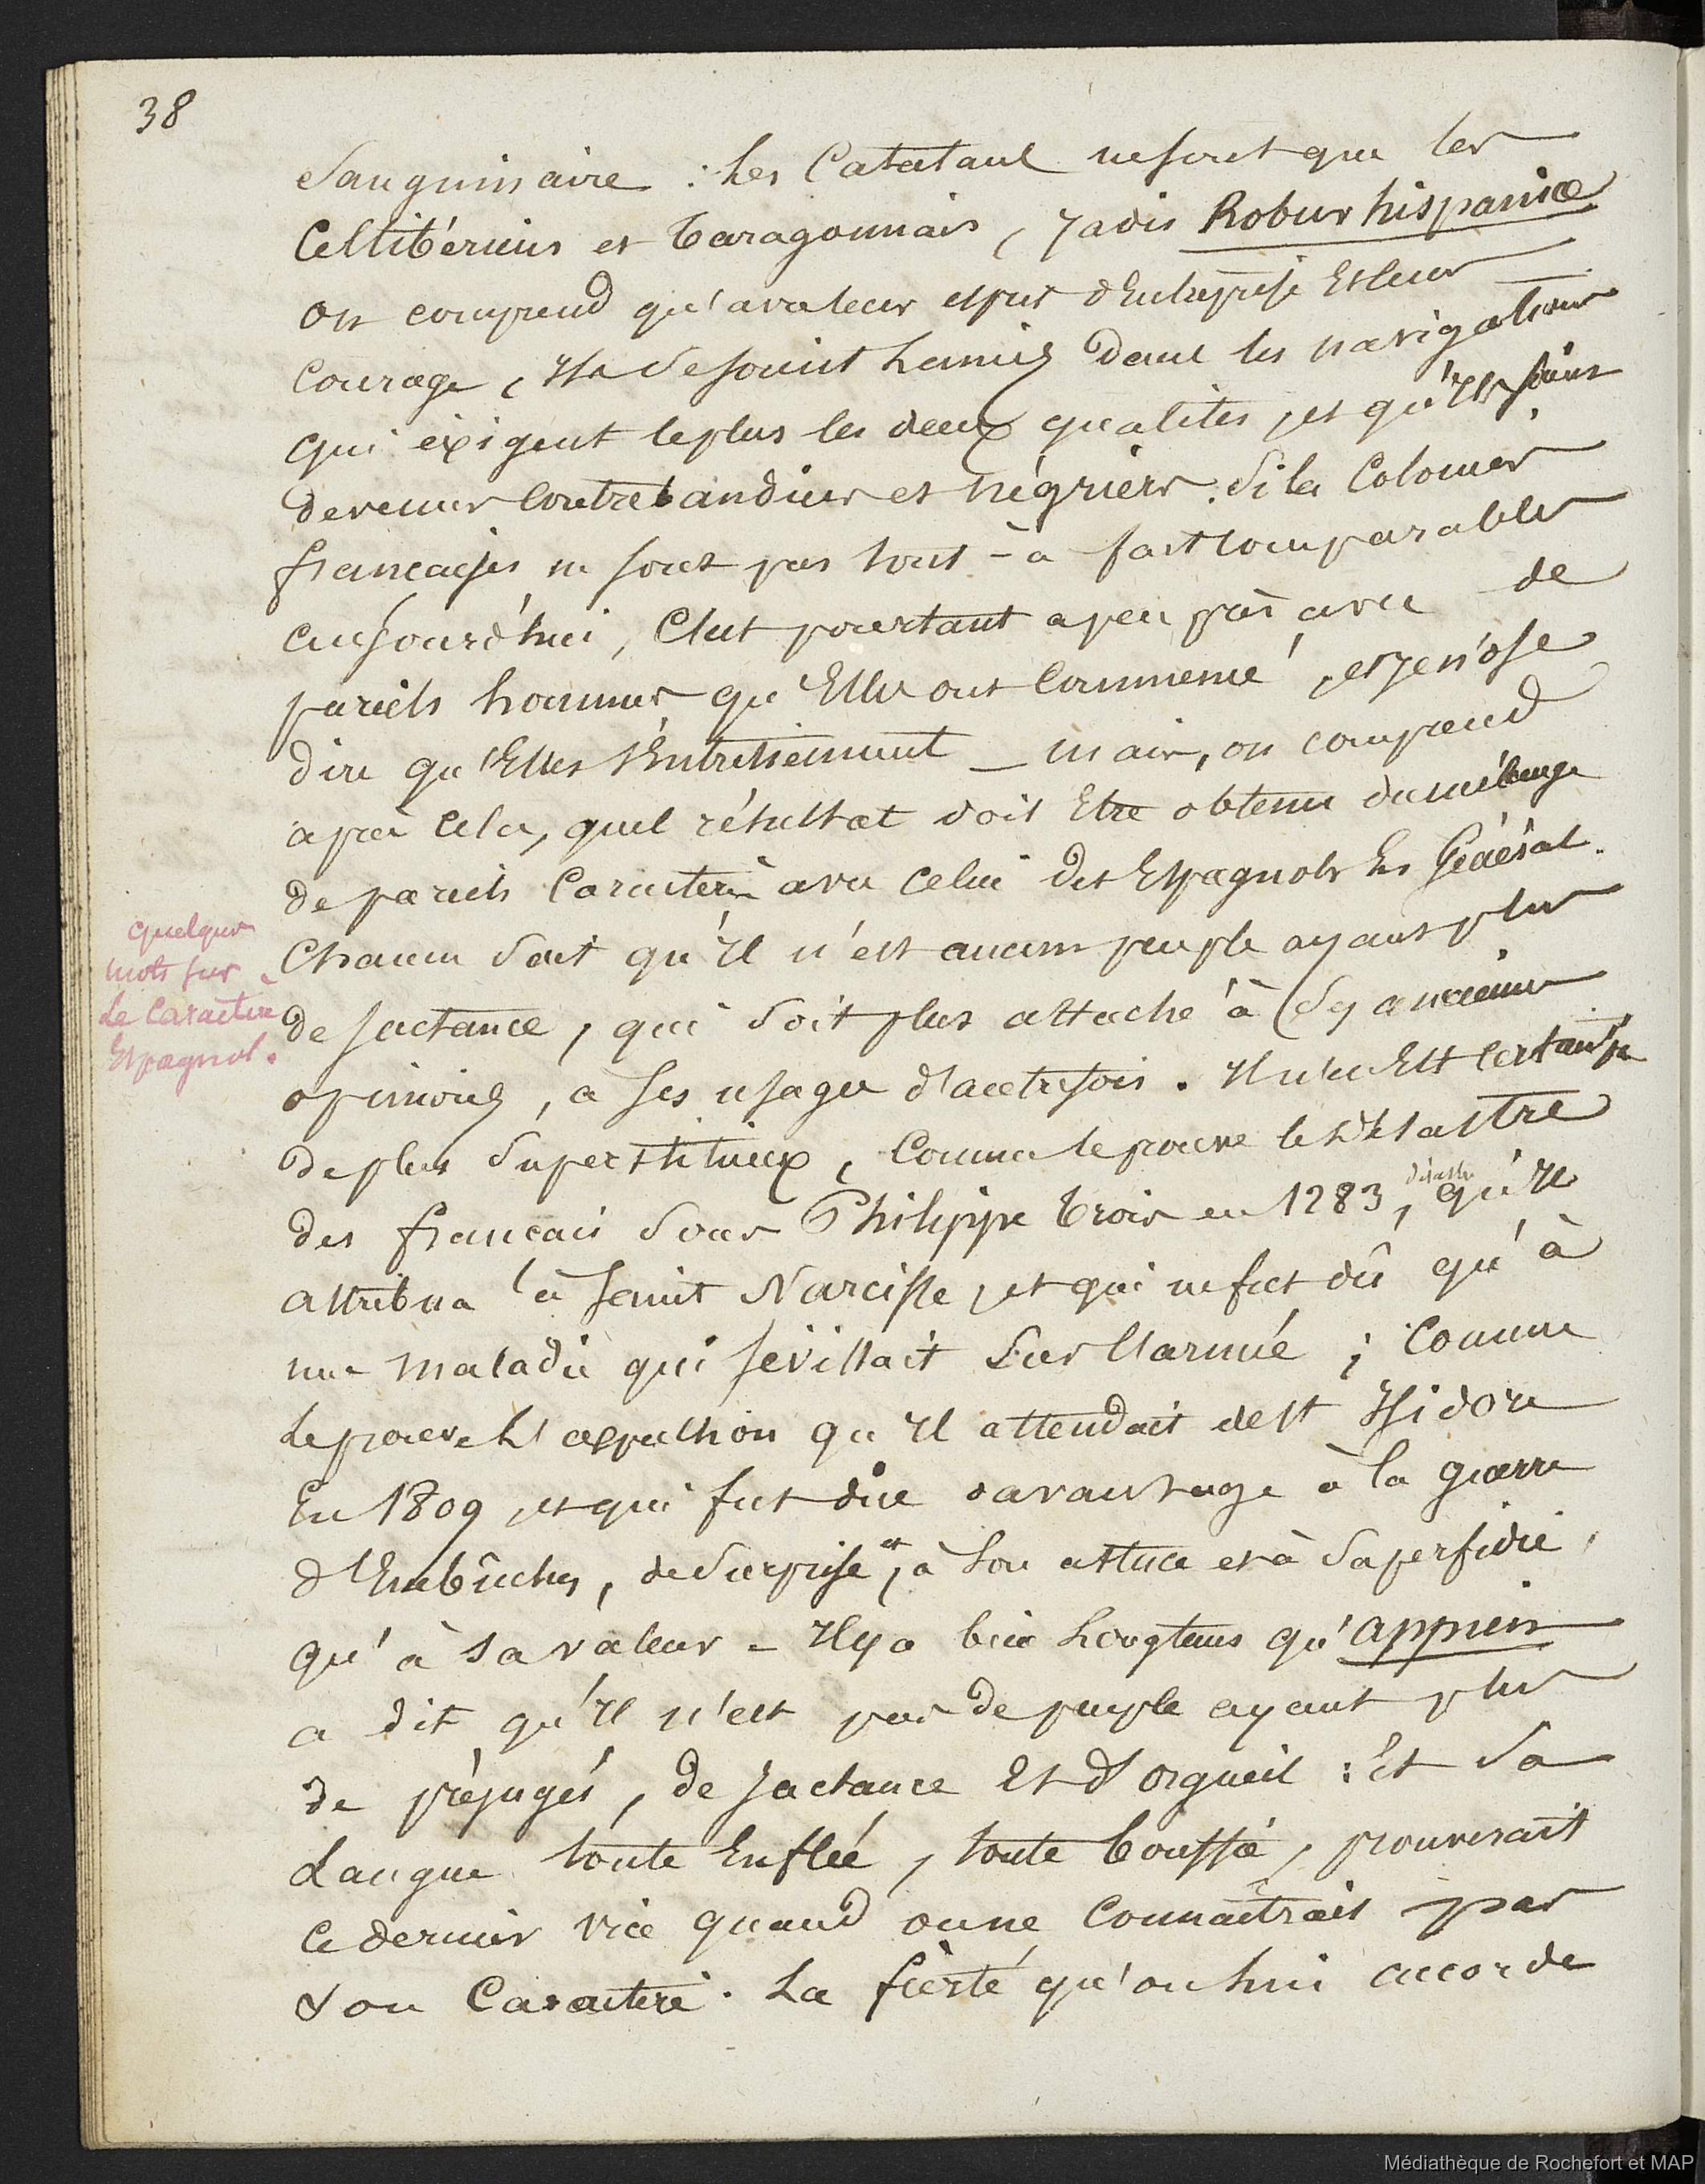 38
Sanguinaire : les Catalans ne sont que les
Celtibériens et Taragonnais, Jadis Robur hispaniæ
on comprend qu'avec leur esprit d'Entreprise Et leur
Courage, Ils se soient lancés dans les navigations
qui éxigent le plus les deux qualités, et qu'Ils soient
devenus Contrebandiers et Négriers. Si les Colonies
francaises ne sont pas tout-à fait comparables
aujourd'hui, C'est pourtant a peu près avec de
pareils hommes qu'Elles ont Commencé, et Je n'ose
dire qu'Elles s'Entretiennent _ mais, on comprend
après Cela, quel résultat doit Etre obtenu du mélange
de pareils Caractères avec Celui des Espagnols En Général.
Chacun sait qu'Il n'est aucun peuple ayant plus
de Jactance, qui soit plus attaché à ses anciennes
opinions, a ses usages d'autrefois. Il n'en Est certain pas
de plus Superstitieux, Comme le prouve le désastre
des francais sous Philippe trois en 1283, désastre qu'Il
attribua à Saint Narcisse, et qui ne fut dû qu'à
une maladie qui sévissait sur l'armée ; Comme
le prouve l'expulsion qu'Il attendait de St Isidore
En 1809, et qui fut dûe davantage à la guerre
d'Embûches, de Surprise, et à Son astuce et à Sa perfidie,
qu'à sa valeur - Il y a bien longtems qu'appien
a dit qu'Il n'est pas de peuple ayant plus
de préjugés, de Jactance Et d'orgueil : Et Sa
Langue toute Enflée, toute bouffie, prouverait
Ce dernier vice quand on ne Connaîtrait pas
son Caractère. La fierté qu'on lui accorde
quelques
mots sur
Le Caractère
Espagnol.
Médiathèque de Rochefort et MAP